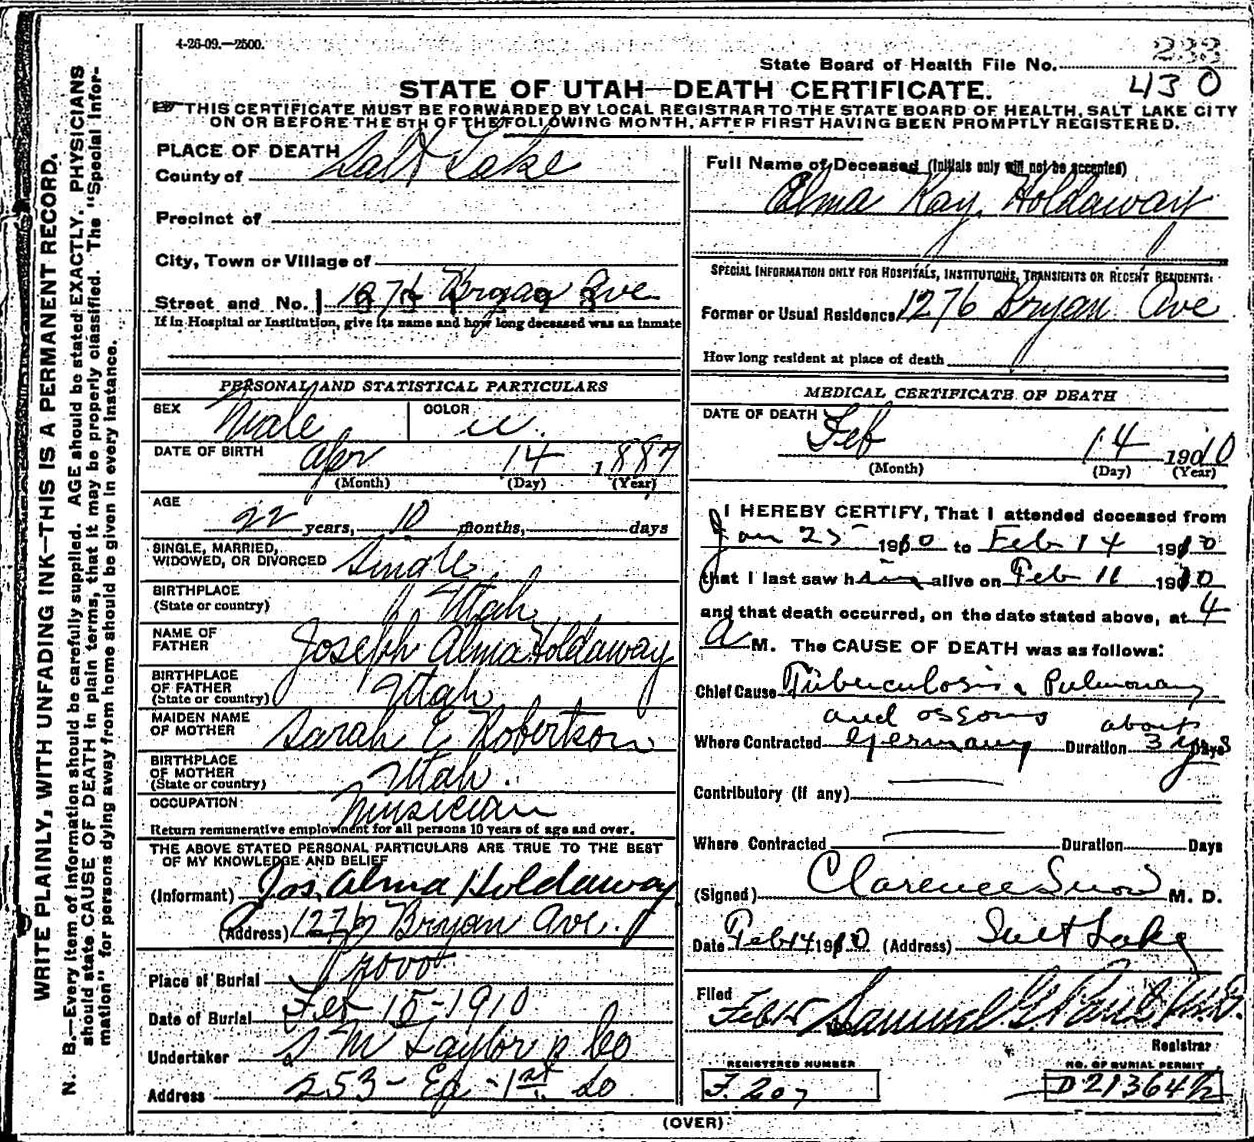 4-26-09.—2500.
233
State Board of Health File No.
430
STATE OF UTAH—DEATH CERTIFICATE.
THIS CERTIFICATE MUST BE FORWARDED BY LOCAL REGISTRAR TO THE STATE BOARD OF HEALTH, SALT LAKE CITY
ON OR BEFORE THE 5TH OF THE FOLLOWING MONTH, AFTER FIRST HAVING BEEN PROMPTLY REGISTERED.
WRITE PLAINLY, WITH UNFADING INK—THIS IS A PERMANENT RECORD.
N. B.—Every item of information should be carefully supplied. AGE should be stated EXACTLY. PHYSICIANS
should state CAUSE OF DEATH in plain terms, that it may be properly classified. The "Special Infor-
mation" for persons dying away from home should be given in every instance.
PLACE OF DEATH
County of Salt Lake
Precinct of
City, Town or Village of
Street and No. 1276 Bryan Ave
If in Hospital or Institution, give its name and how long deceased was an inmate
PERSONAL AND STATISTICAL PARTICULARS
SEX Male COLOR W.
DATE OF BIRTH Apr 14 1887
(Month) (Day) (Year)
AGE
22 years, 10 months, days
SINGLE, MARRIED,
WIDOWED, OR DIVORCED Single
BIRTHPLACE
(State or country) Utah
NAME OF
FATHER Joseph Alma Holdaway
BIRTHPLACE
OF FATHER
(State or country) Utah
MAIDEN NAME
OF MOTHER Sarah E Robertson
BIRTHPLACE
OF MOTHER
(State or country) Utah.
OCCUPATION: Musician
Return remunerative employment for all persons 10 years of age and over.
THE ABOVE STATED PERSONAL PARTICULARS ARE TRUE TO THE BEST
OF MY KNOWLEDGE AND BELIEF
(Informant) Jos. Alma Holdaway
(Address) 1276 Bryan Ave.
Place of Burial Provo
Date of Burial Feb 15-1910
Undertaker S M Taylor & Co
Address 253- Ea -1st So
Full Name of Deceased (Initials only will not be accepted)
Alma Ray Holdaway
SPECIAL INFORMATION ONLY FOR HOSPITALS, INSTITUTIONS, TRANSIENTS OR RECENT RESIDENTS:
Former or Usual Residence 1276 Bryan Ave
How long resident at place of death
MEDICAL CERTIFICATE OF DEATH
DATE OF DEATH Feb 14 1910
(Month) (Day) (Year)
I HEREBY CERTIFY, That I attended deceased from
Jan 25 1910 to Feb 14 1910
that I last saw him alive on Feb 11 1910
and that death occurred, on the date stated above, at 4
A M. The CAUSE OF DEATH was as follows:
Chief Cause Tuberculosis Pulmonary
and osseous about
Where Contracted Germany Duration 3 yrs Days
Contributory (if any)
Where Contracted Duration Days
(Signed) Clarence Snow M. D.
Date Feb 14 1910 (Address) Salt Lake
Filed Feb 15 Samuel G. Paul
Registrar
REGISTERED NUMBER
F. 207
NO. OF BURIAL PERMIT
D 21364 1/2
(OVER)